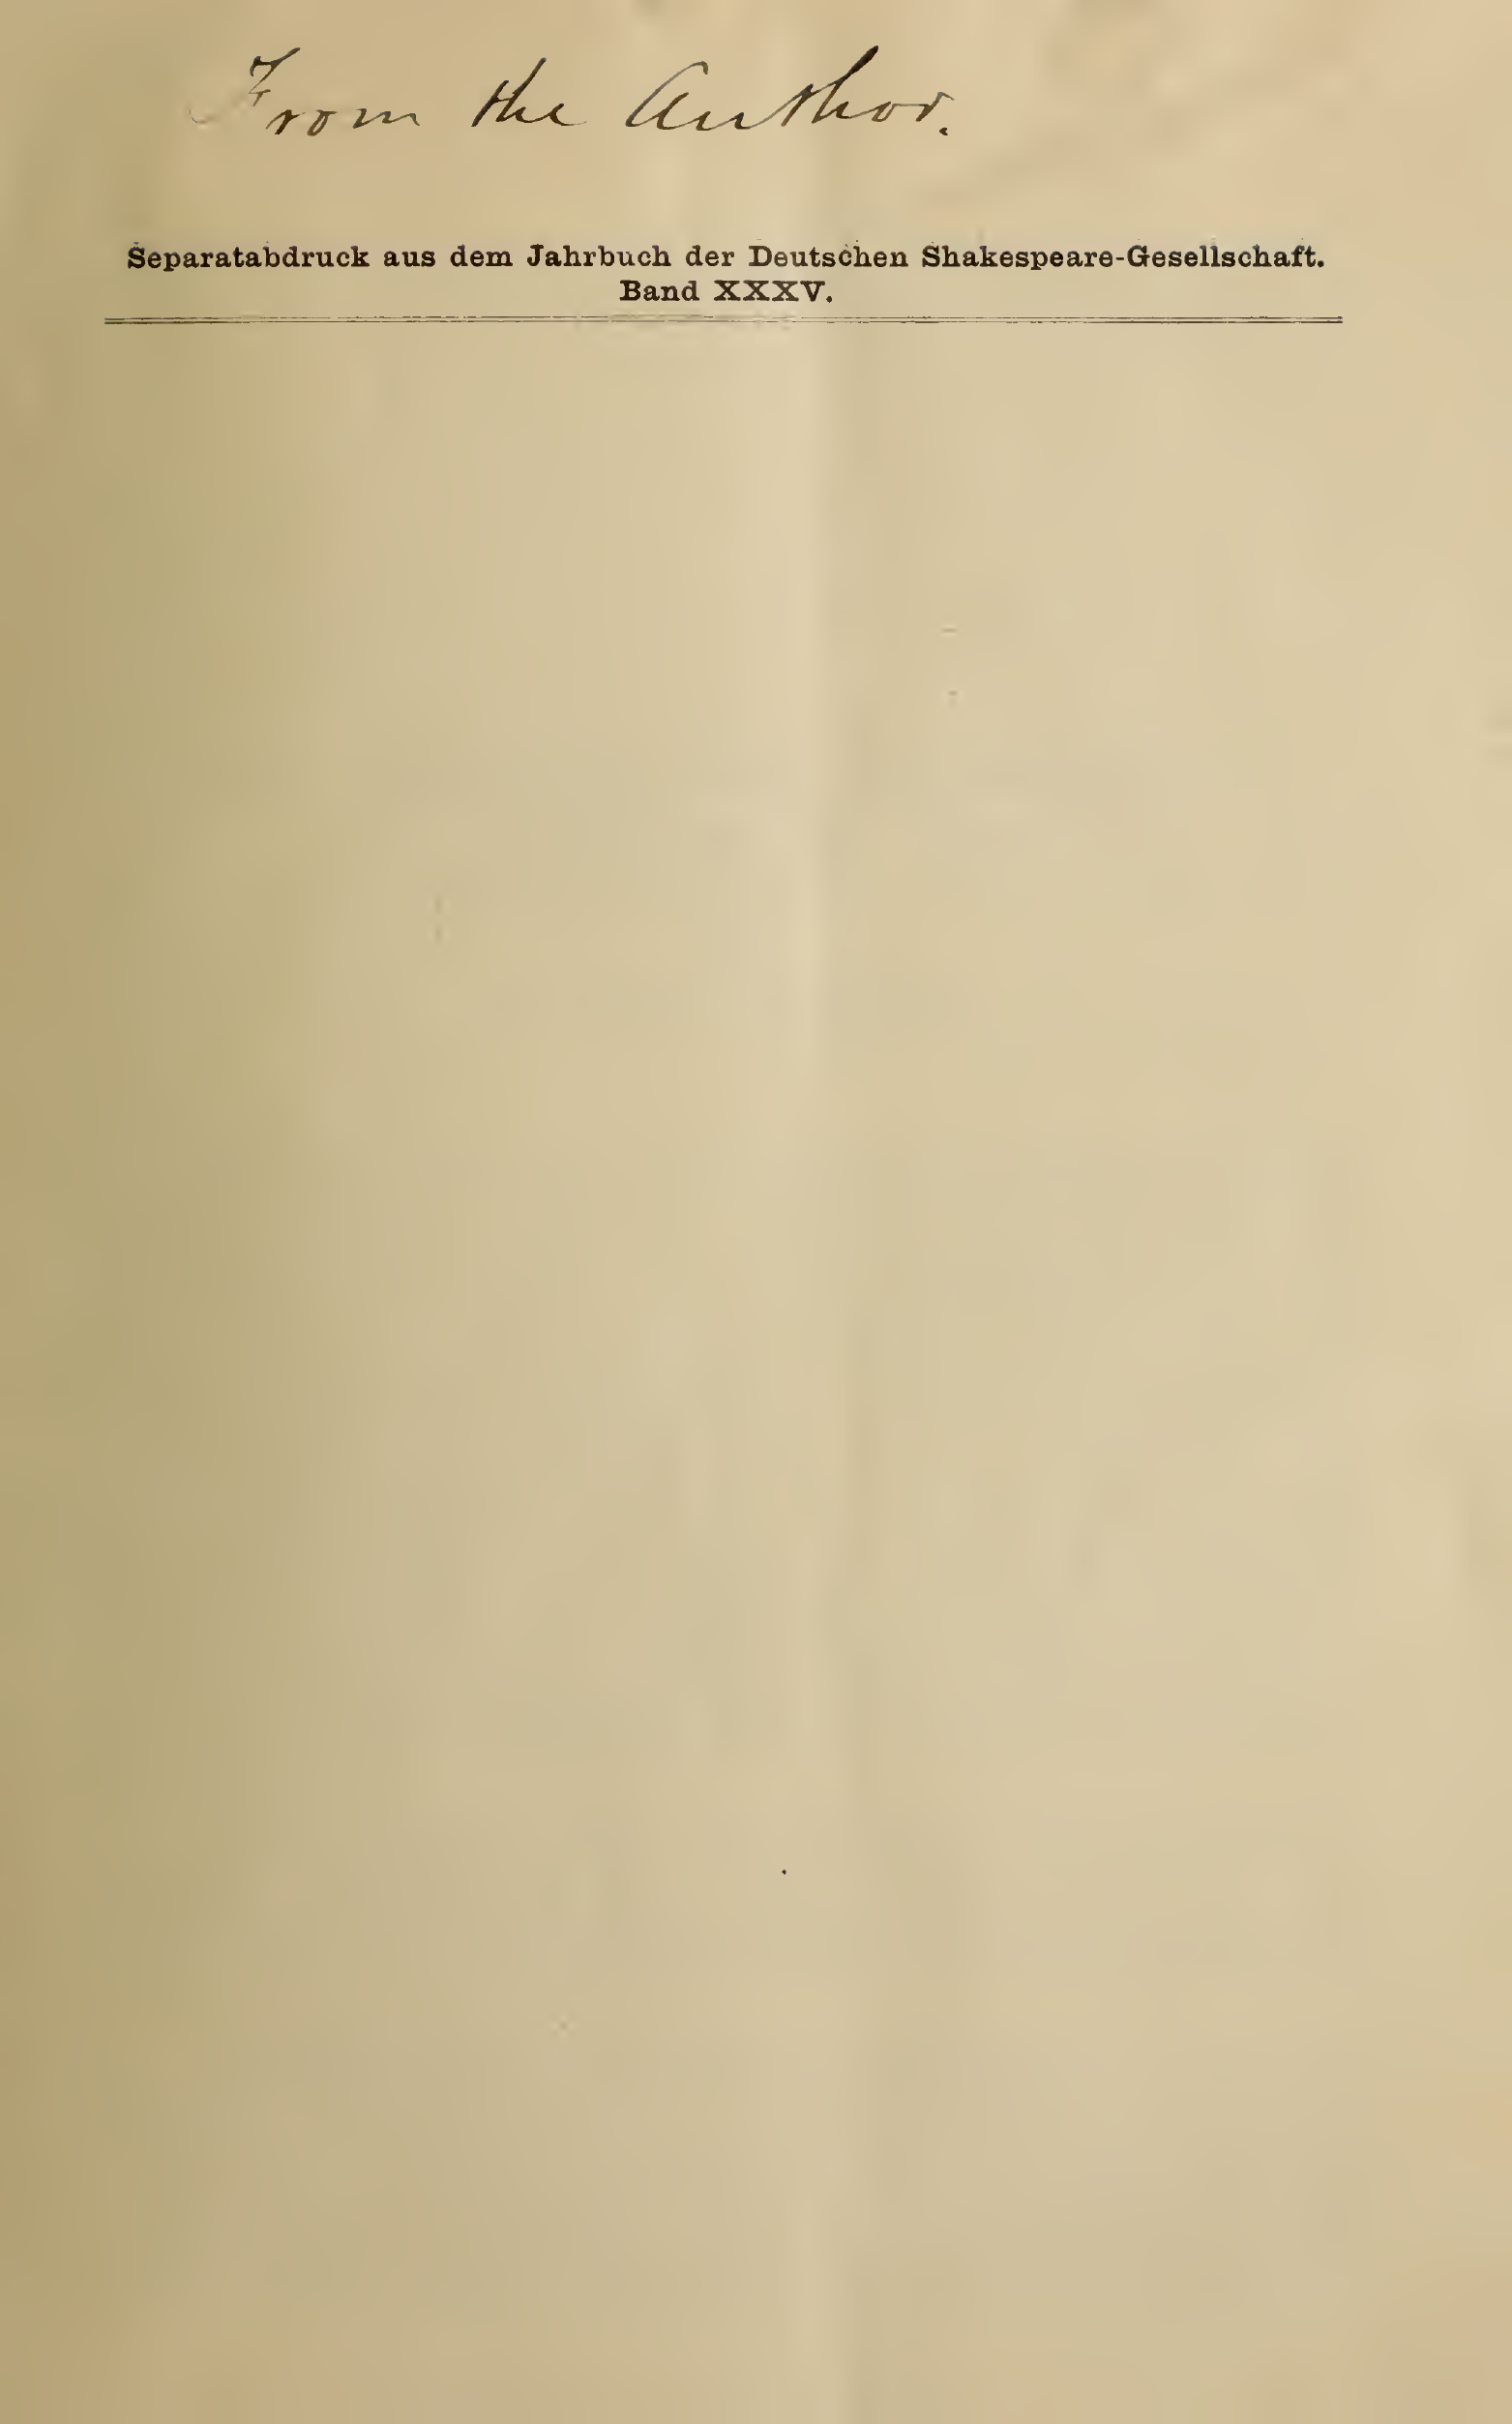 From the Author.
Separatabdruck aus dem Jahrbuch der Deutschen Shakespeare-Gesellschaft.
Band XXXV.